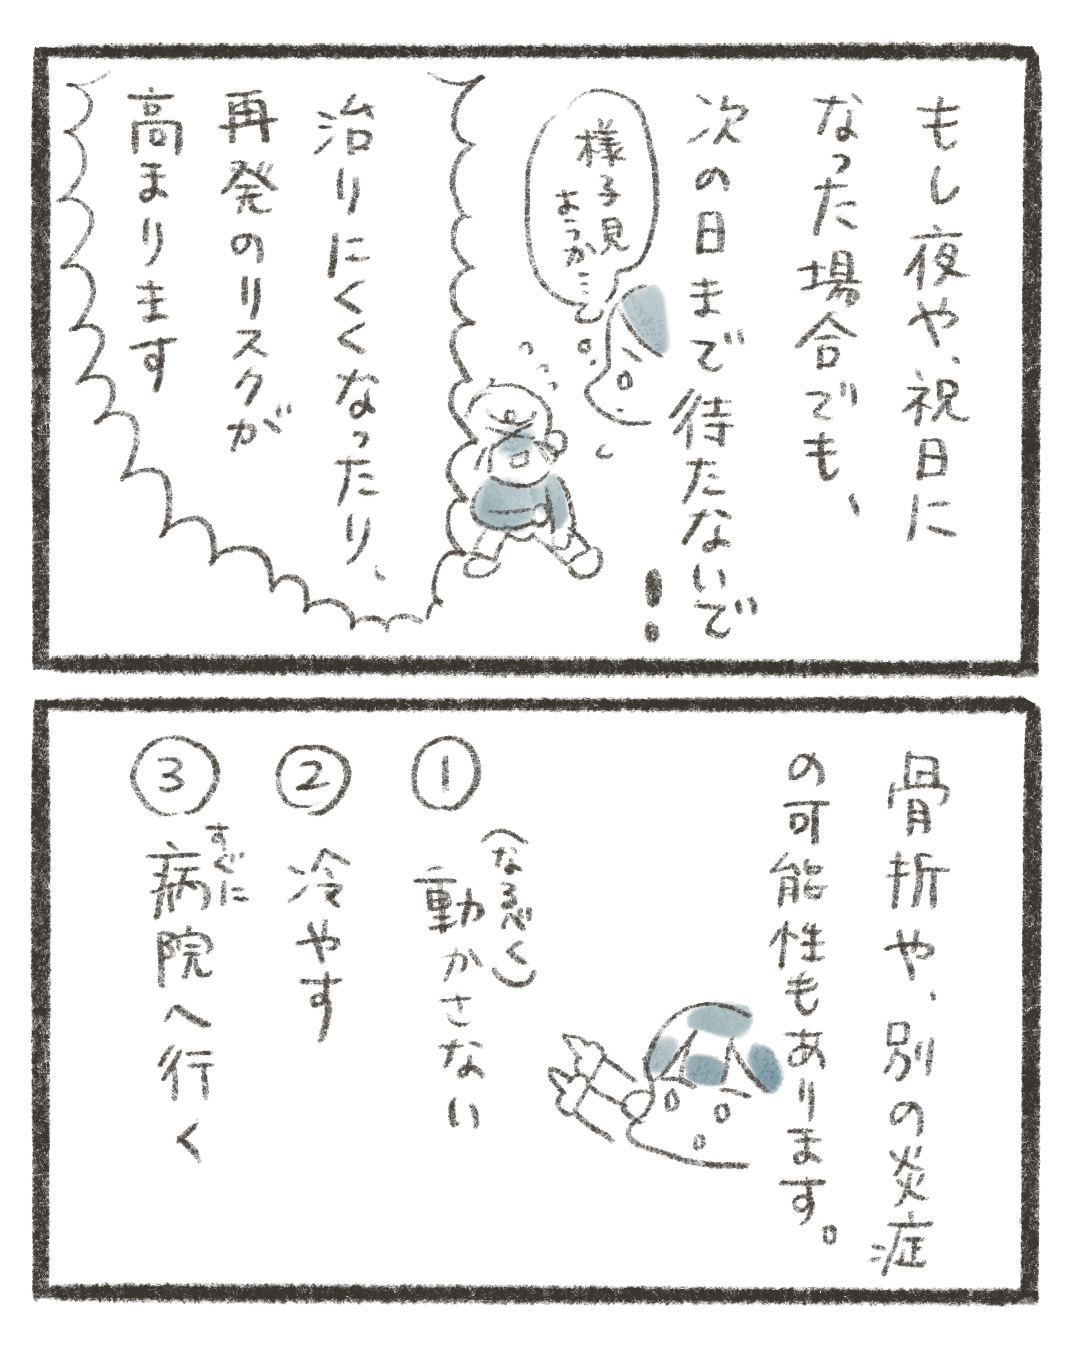 もし夜や、祝日に
なった場合でも、
次の日まで待たないで
!
様子見
ようか…て
治りにくくなったり、
再発のリスクが
高まります
骨折や、別の炎症
の可能性もあります。
①(なるべく)動かさない
②冷やす
③すぐに病院へ行く